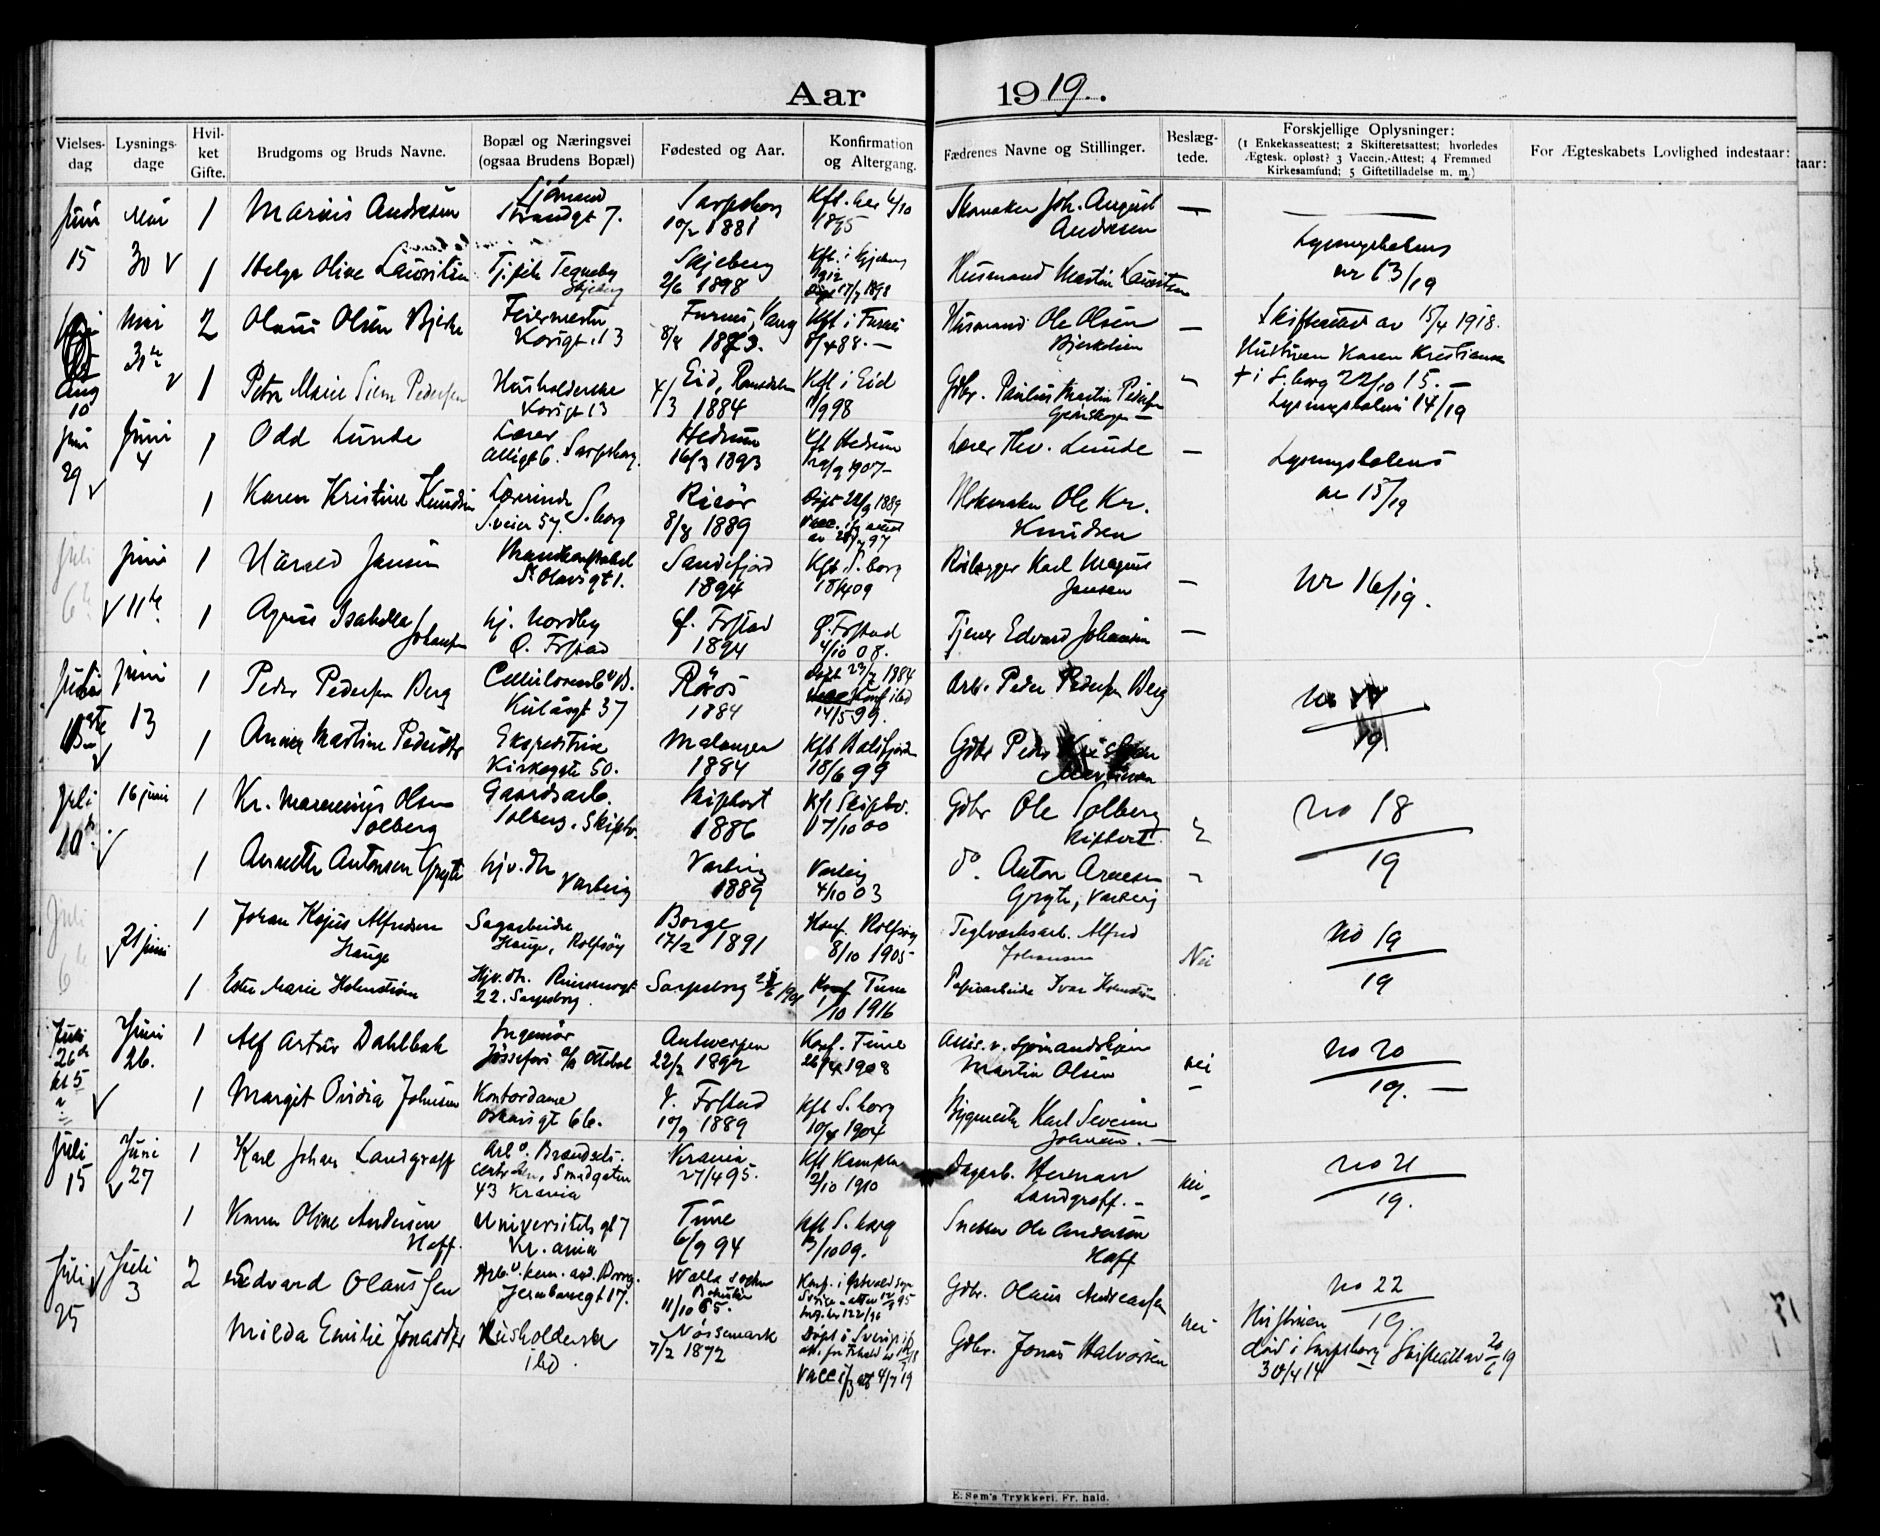 Aar 1919.
Vielsesdag
Lysningsdage
Hvilket Gifte.
Brudgoms og Bruds Navne.
Bopæl og Næringsvei (ogsaa Brudens Bopæl)
Fødested og Aar.
Konfirmation og Altergang.
Fædrenes Navne og Stillinger.
Beslægtede.
Forskjellige Oplysninger:
(1 Enkekasseattest; 2 Skifteretsattest; hvorledes Ægtesk. opløst? 3 Vaccin.-Attest; 4 Fremmed Kirkesamfund; 5 Giftetilladelse m. m.)
For Ægteskabets Lovlighed indestaar:
taar:
Juni 15 Mai 30 v 1 Marius Andresen Sjømand Strandgt 7. Sarpsborg 10/2 1881 Kft. 6/10 1895 Skomaker Joh. August Andresen —
Lysningsbolens nr 13/19
1 Helga Olive Lauritsen Tj.pike Tegneby Skjeberg Skjeberg 2/6 1898 Kft. i Skjeberg 1912 17/7 1898 Husmand Martin Lauritsen
Aug 10 Mai 31te v 2 Olaus Olsen Bjerke Feiermester Korsgt. 13 Furnes, Vang 8/8 1873. Kft i Furnes 8/4 88. — Husmand Ole Olsen Bjerkelien —
Skifteattest av 15/4 1918.
Hustruen Karen Kristiansen
† i S.borg 22/10 15. —
Lysningsbolens 14/19
1 Petra Marie Siem Pedersen Husholderske Korsgt 13 Eid, Romsdalen 4/3 1884 Kft i Eid 1/9 98 Gdbr. Paulus Martin Pedersen —
Juni 29 v Juni 4 1 Odd Lunde Lærer Sarpsborg. Hedrum 16/3 1893 Kft Hedrum 1907 — Lærer Thv. Lunde —
Lysningsbolens nr 15/19
1 Karen Kristine Knudsen Lærerinde S.veien 57. S.borg Risør 8/8 1889 Døpt 22/9 1889 Vacc. 97 Ole Kr. Knudsen
Juli 6te v Juni 11te 1 Harald Jansen Brandkonstabel St Olavsgt 1. Sandefjord 1894 Kft S.borg 18/4 09 Rørlægger Karl Magnus Jansen —
Nr 16/19.
1 Agnes Isabella Johansen hj. Nordby Ø. Frstad Ø. Frstad 1894 Ø. Frstad 4/10 08. Tjener Edvard Johansen —
Juli 13 v Juni 13 1 Peder Pedersen Berg Kulåsgt 37 Røros 1884 Døpt 23/2 1984 14/5 99. Arb. Peder Pedersen Berg
No 17 / 19
1 Anna Martine Pedersdtr Ekspeditrise Kirkegt. 50. Malangen 1884 Kft Balsfjorden 18/6 99 Gdbr Peder
Juli 10de v 16 juni 1 Kr. Marenius Olsen Solberg Gaardsarb. Solberg, Skiptv. Skiptvet 1886 Kft Skiptv. 7/10 00 Gdbr Ole Solberg Skiptvet
No 18 / 19
1 Annette Antonsen Gryte hjv. dtr Varteig Varteig 1889 Varteig 4/10 03 do. Anton Arnesen Gryte, Varteig
Juli 6te v 21 juni 1 Johan Hojus Alfredsen Hauge Sagarbeider Hauge, Rolfsøy Borge 17/2 1891 Konf. Rolfsøy 8/10 1905 Teglværksarb. Alfred Johansen Nei
No 19 / 19
1 Ester Marie Holmstrøm Hjv. dtr. 22. Sarpsborg. Sarpsborg Konf Tune 1/10 1916 Papirarbeider Ivar Holmstrøm
Juli 26de kl 5 v Juni 26. 1 Alf Artur Dahlbak Ingeniør Jøssefors Antwerpen 22/2 1892 Konf. Tune 26/4 1908 Martin Olsen nei —
No 20 / 19. —
1 Margit Ovidia Johnsen Kontordame Oskarsgt 66. Ø. Frstad 10/9 1889 Kft S.borg 10/4 1904 Bygmester Karl Severin Johnsen. —
Juli 15 Juni 27 v 1 Karl Johan Landgraff Arb. v. 43 Krania Krania 27/4 95. Kft Kampen 2/10 1910 Dagarb. Herman Landgraff. — nei
No 21 / 19.
1 Karen Oline Andersen Haff. Universitetsgt 7 Kr.ania Tune 6/9 94 Kft S.borg 3/10 09. Snekker Ole Andersen Haff
Juli 25 v Juli 3 2 Edvard Olaussen Jernbanegt 17. 11/10 65. Gdbr. Olaus Andreassen nei
No 22 / 19.
Hustruen død i Sarpsborg 30/4 14 — Skifteatt av 20/6 19
Milda Emilie Jonasdtr Husholderske ibd. Nössemark 7/2 1872 Døpt i Sverige Vacc iflg att 4/7 19 Gdbr. Jonas Halvorsen
E. Sem's Trykkeri. Fr.hald.